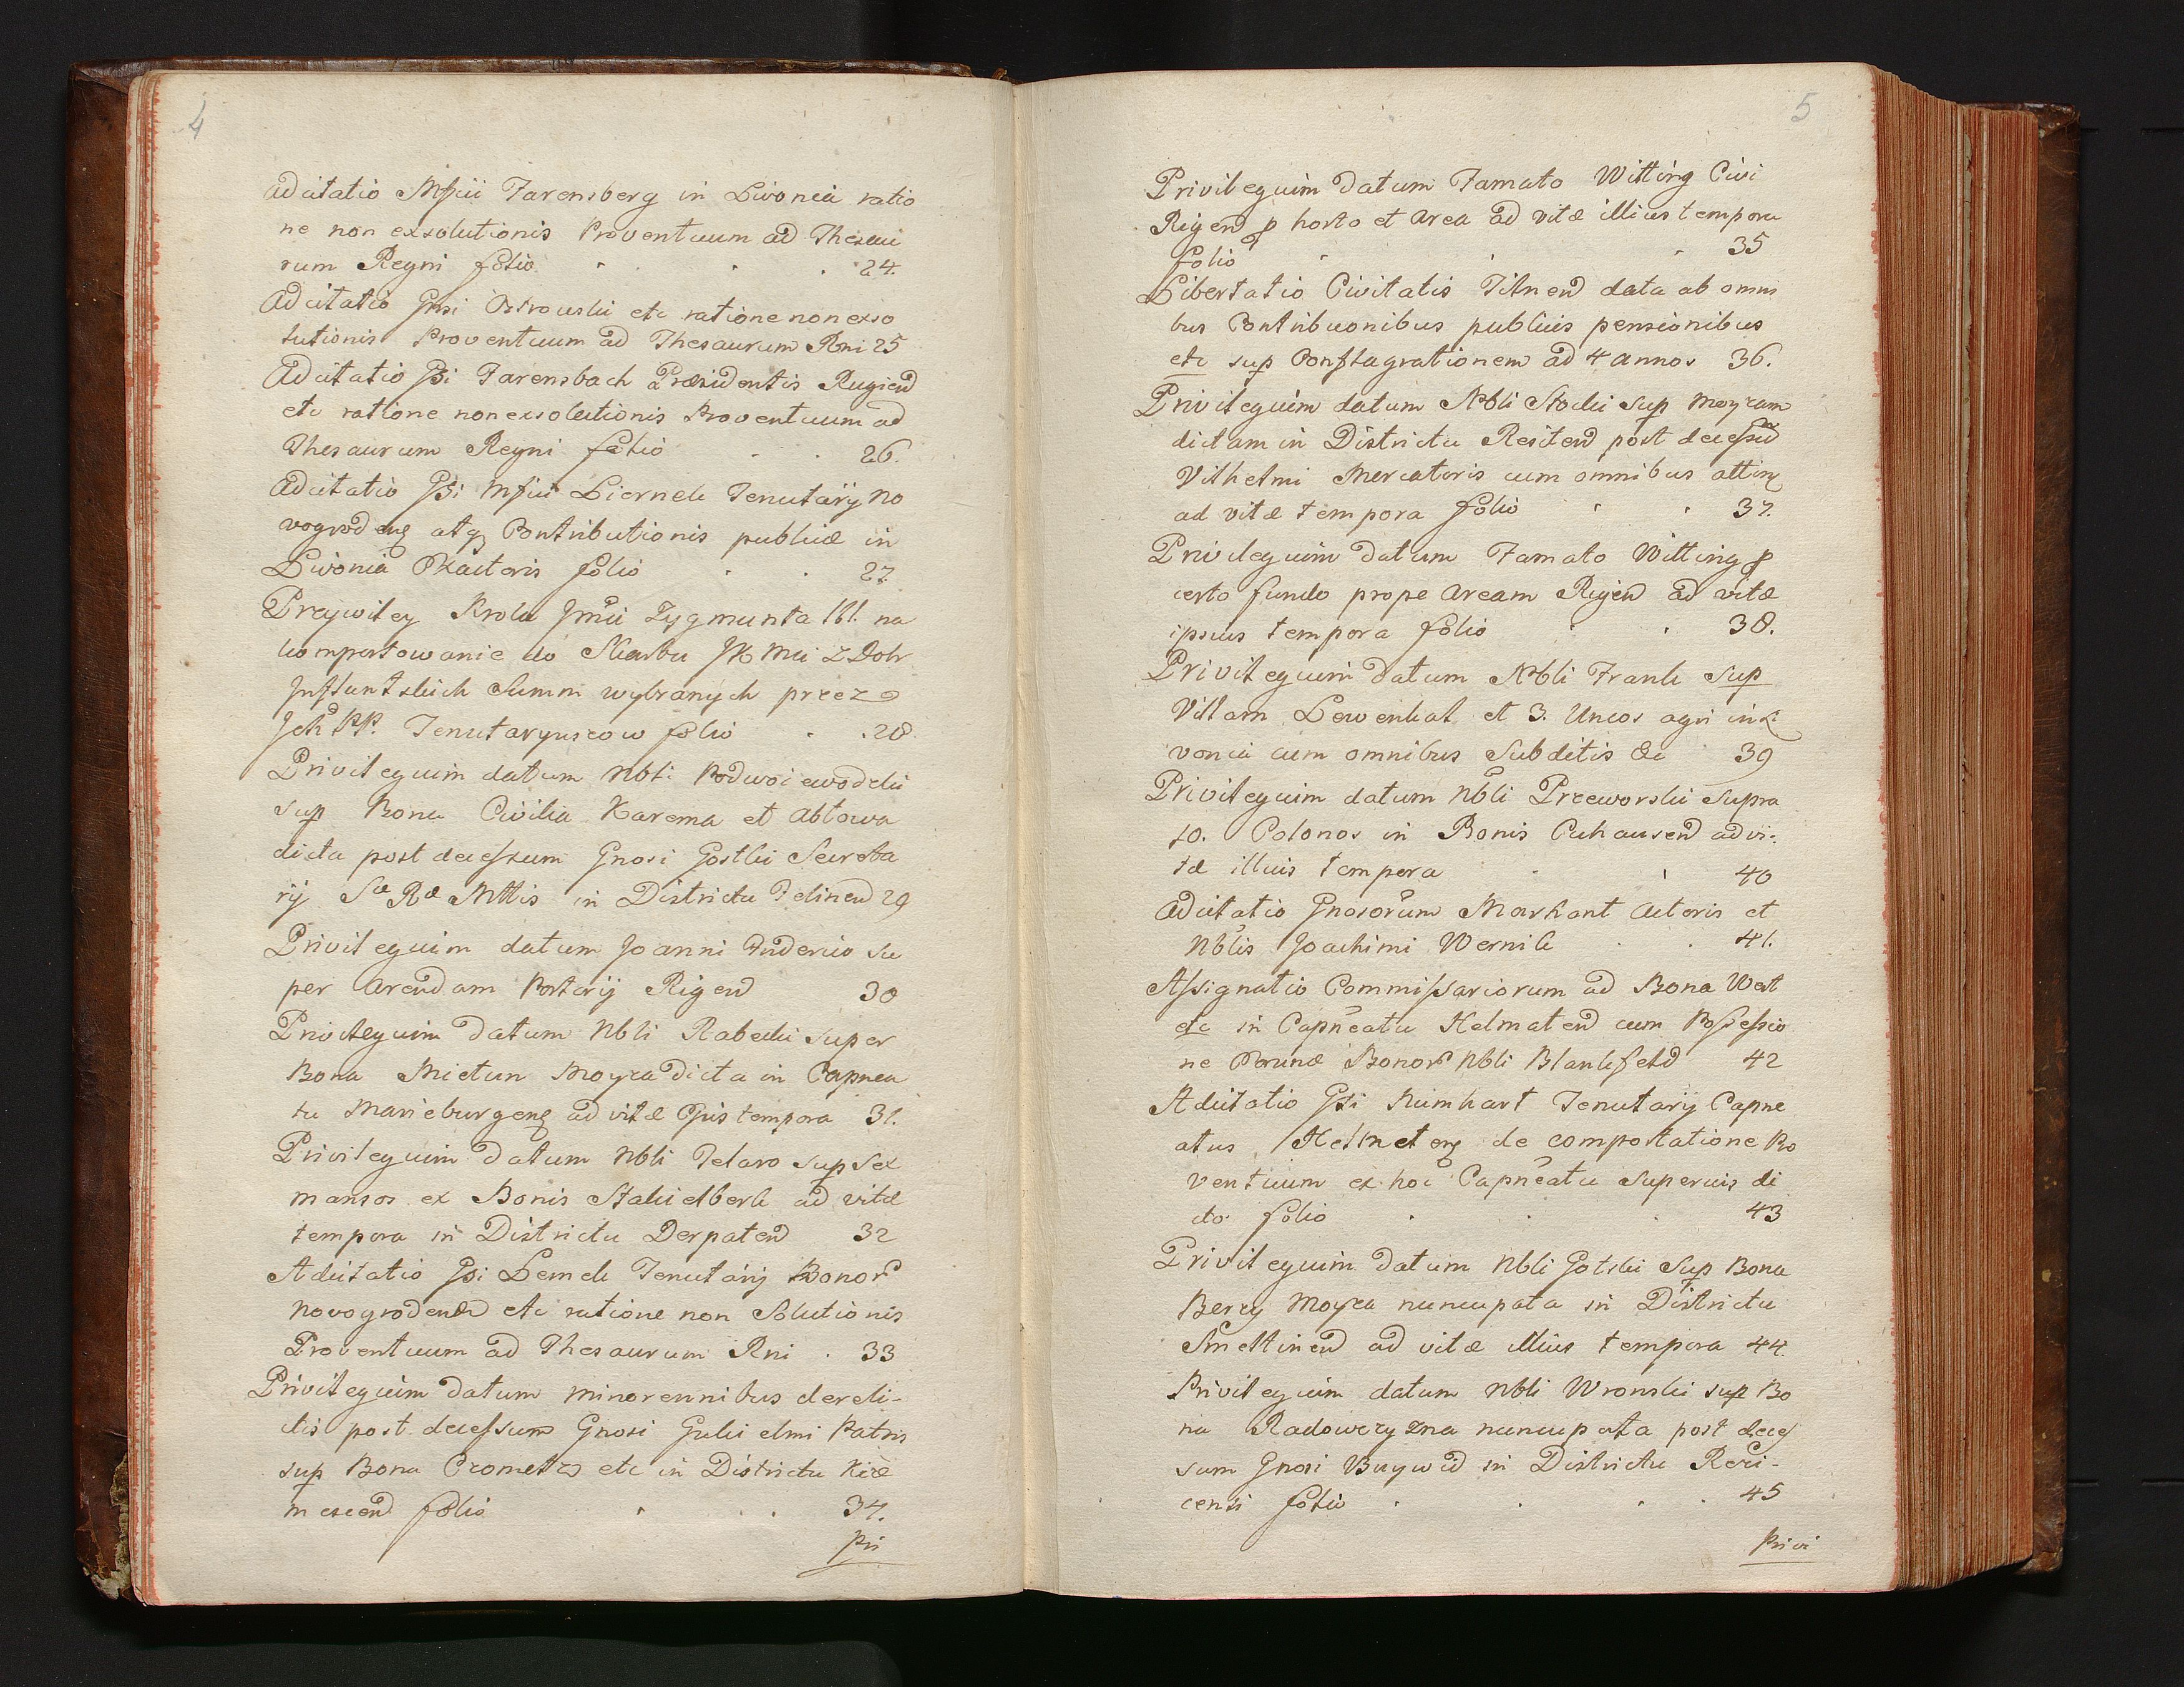 4
Adcitatio Mfici Farensberg in Livonia ratio
ne non exsolutionis Proventuum ad Thesau
rum Regni folio 24.
Adcitatio Gnsi Ostrouski etc ratione non exso
lutionis Proventuum ad Thesaurum Rni 25
Adcitatio Gsi Farensbach Præsidentis Rugiend
etc ratione non exsolutionis Proventuum ad
Thesaurum Regni folio 26.
Adcitatio Gsi Mfici Liernek Tenutarij No
vogrodenq atq Contributionis publicæ in
Livonia Exactoris folio 27.
Przywiley Krola Jmci Zygmunta III. na
komportowanie do Skarbu JK Mci z Dobr
Jnflantskich Summ wybranych przez
Jch PP. Tenutaryuszow folio 28.
Privilegium datum Nbli Podwoiewodski
sup Bona Civilia Karema et Abtowa
dicta post decessum Gnosi Gostki Secreta
rij Sæ Ræ Mttis in Districtu Felinend 29
Privilegium datum Joanni Friderico su
per Arendam Portorij Rigend 30
Privilegium datum Nbli Rabecki super
Bona Mictun Moyza dicta in Capnea
tu Marieburgenq ad vitæ Ejus tempora 31.
Privilegium datum Nbli Petaro sup sex
mansos ex Bonis Stakielberk ad vitæ
tempora in Districtu Derpatend 32
Adcitatio Gsi Lernek Tenutarij Bonor
Novogrodend etc ratione non Solutionis
Proventuum ad Thesaurum Rni 33
Privilegium datum minorennibus dereli-
ctis post decessum Gnosi Gulielmi Patris
sup Bona etc in Districtu Kire
mescend folio 34.
Pri
5
Privilegium datum Famato Witting Civi
Rigend p horto et area ad vitæ illius tempora
folio 35
Libertatio Civitatis Filnend data ab omni
bus Contribuonibus publicis pensionibus
etc sup Conflagrationem ad 4 annos 36.
Privilegium datum Nbli Stocki sup Moyzam
dictam in Districtu Resitend post decessu
Vilhelmi Mercatoris cum omnibus attinq
ad vitæ tempora folio 37.
Privilegium datum Famato Witting p
certo fundo prope Aream Rigend ad vitæ
ipsius tempora folio 38.
Privilegium datum Nbli Frank sup
Villam Lewenkat et 3. Uncos agri in Li
vonia cum omnibus Subditis &c 39
Privilegium datum Nbli Przeworski supra
10. Colonos in Bonis Cuhausend ad vi-
tæ illius tempora 40
Adcitatio Gnosorum Markant Actoris et
Nblis Joachimi Wernik 41.
Assignatio Commissariorum ad Bona West
etc in Capneatu Helmatend cum Possessio
ne Corunæ Bonor Nbli Blankfeld 42
Adcitatio Gsi Kumhart Tenutarij Capne
atus Helmetenq de comportatione Pro
ventuum ex hoc Capneatu superius di
cto folio 43
Privilegium datum Nbli Gotski sup Bona
Berzy Moyza nuncupata in Districtu
Smeltinend ad vitæ illius tempora 44.
Privilegium datum Nbli Wronski sup Bo
na Radowczyzna nuncupata post deces
sum Gnosi Buywid in Districtu Rezi-
censi folio 45
Privi